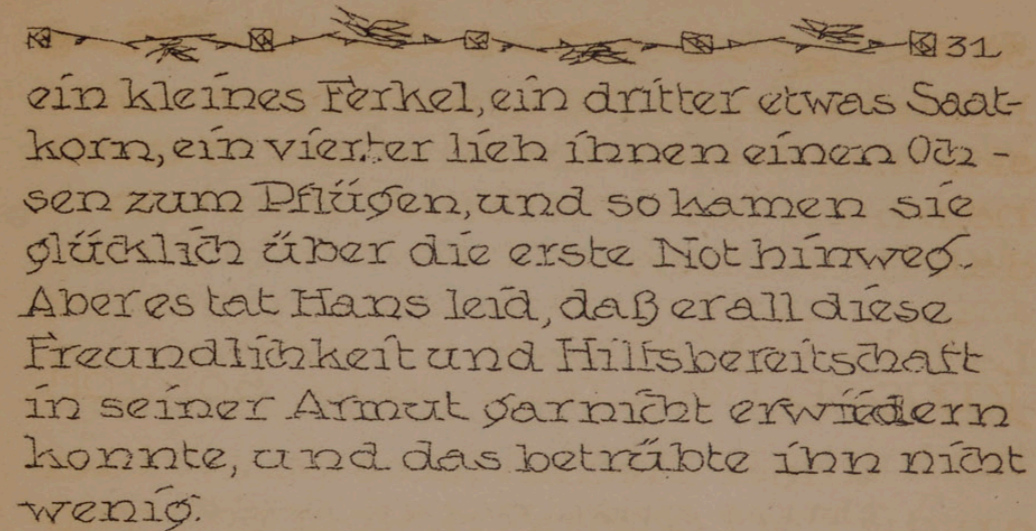 31
ein kleines Ferkel, ein dritter etwas Saat-
korn, ein vierter lieh ihnen einen Och-
sen zum Pflügen, und so kamen sie
glücklich über die erste Not hinweg.
Aber es tat Hans leid, daß er all diese
Freundlichkeit und Hilfsbereitschaft
in seiner Armut gar nicht erwiedern
konnte, und das betrübte ihn nicht
wenig.